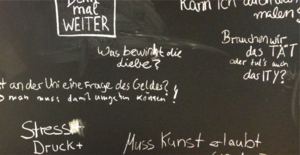 Denk
mal
WEITER
Kann ich auch
malen
Was bewirkt die
diebe?
Brauchen wir
das TAT
oder tut's auch
das ITY?
st an der Uni eine Frage des Geldes?
o man muss damit umgehen können!
Stress
Druck+
Muss Kunst erlaubt